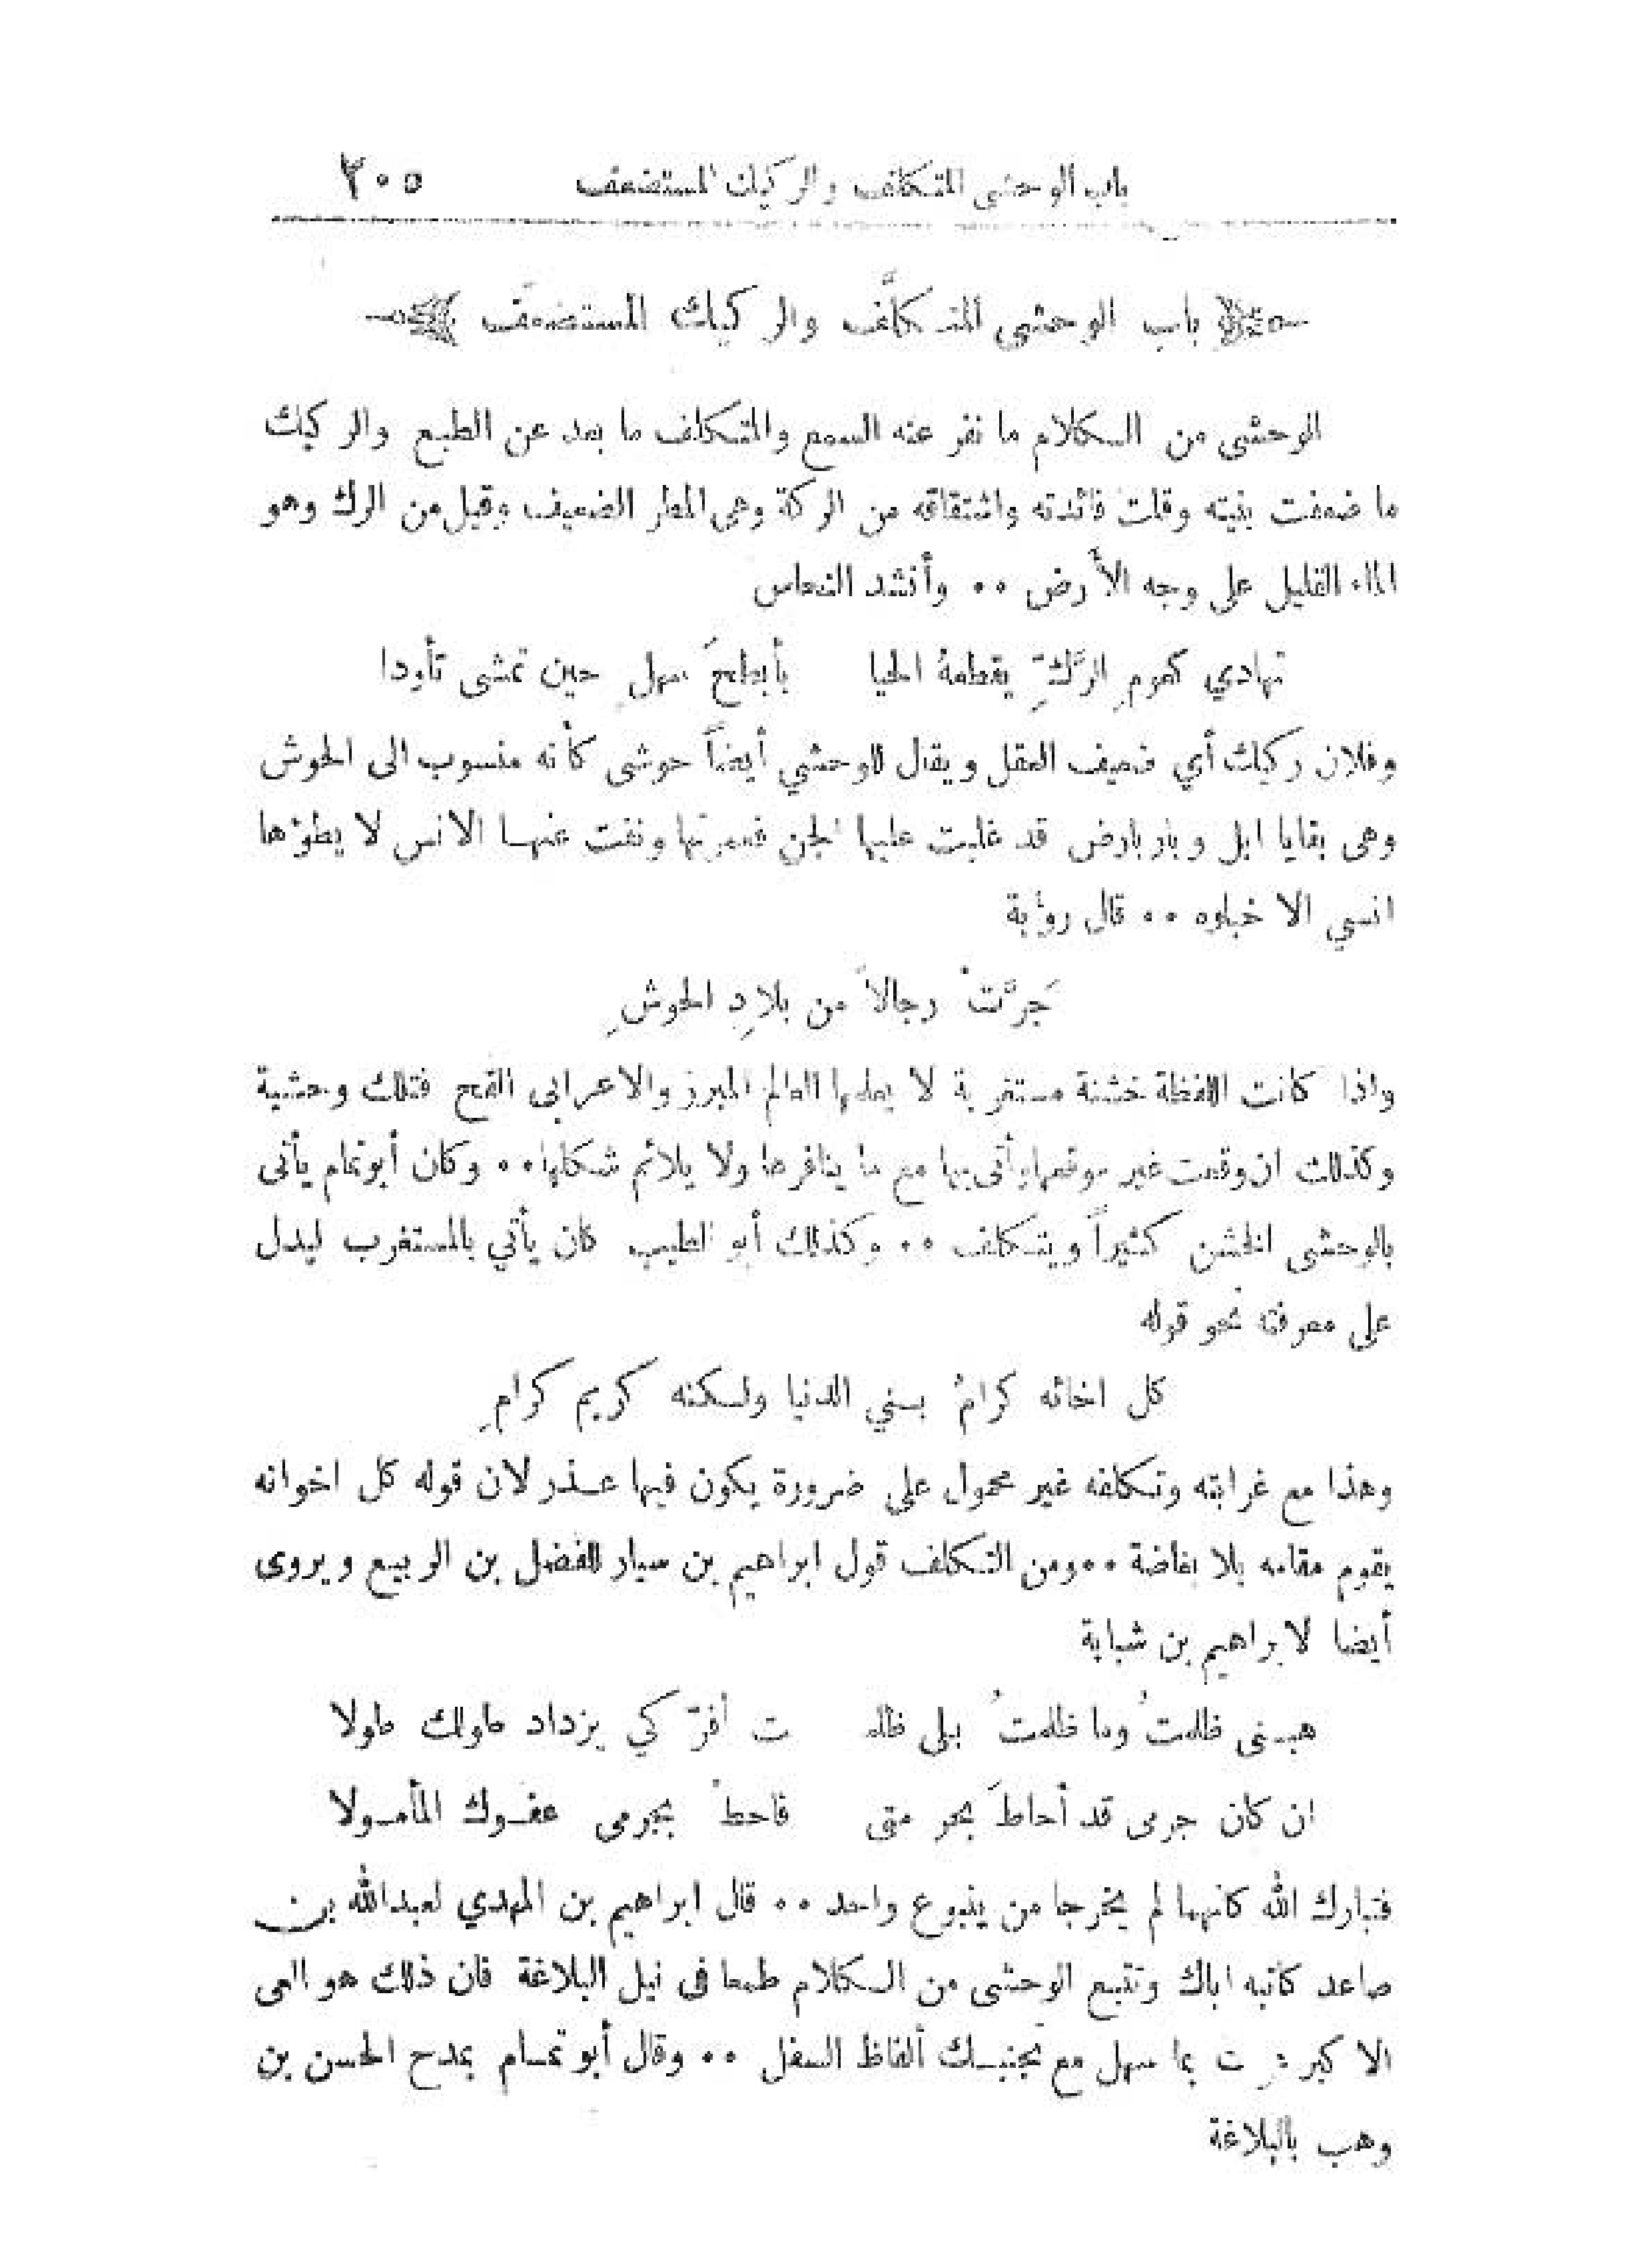 باب الوحشى المتكلف والركيك المستضعف ٢٠٥
باب الوحشي المتكلَّف والركيك المستضعَف
الوحشى من الكلام ما نفر عنه السمع والمتكلف ما بعد عن الطبع والركيك
ما ضعفت بنيته وقلت فائدته واشتقاقه من الركة وهى المطر الضعيف وقيل من الرك وهو
الماء القليل على وجه الأرض ٠٠ وأنشد النحاس
تهادي كعومِ الرّكِّ يقطعهُ الحيا بأبطحَ سهلٍ حين تمشى تأودا
وفلان ركيك أي ضعيف العقل ويقال للوحشي أيضاً حوشى كأنه منسوب الى الحوش
وهى بقايا ابل وبار بارض قد غلبت عليها الجن فعمرتها ونفت عنها الانس لا يطؤها
انسي الا خبلوه ٠٠ قال رؤبة
جَرَّتْ رجالاً من بلادِ الحوشِ
واذا كانت اللفظة خشنة مستغربة لا يعلمها العالم المبرز والاعرابى القح فتلك وحشية
وكذلك ان وقعت غير موقعها يأتى بها مع ما ينافرها ولا يلائم شكلها ٠٠ وكان أبو تمام يأتى
بالوحشى الخشن كثيراً ويتكلف ٠٠ وكذلك أبو الطيب كان يأتي بالمستغرب ليدل
على معرفته نحو قوله
كل اخائه كرامُ بني الدنيا ولكنه كريم كرامِ
وهذا مع غرابته وتكلفه غير محمول على ضرورة يكون فيها عذر لان قوله كل اخوانه
يقوم مقامه بلا بغاضة ٠٠ ومن التكلف قول ابراهيم بن سيار للفضل بن الربيع ويروى
أيضا لابراهيم بن شبابة
هبنى ظلمتُ وما ظلمتُ بلى ظلم ت أقرّ كي يزداد طولك طولا
ان كان جرمى قد أحاطَ بحرمتى فاحطْ بجرمى عفوك المأمولا
فتبارك الله كانهما لم يخرجا من ينبوع واحد ٠٠ قال ابراهيم بن المهدي لعبدالله بن
صاعد كاتبه اياك وتتبع الوحشى من الكلام طمعا فى نيل البلاغة فان ذلك هو العى
الاكبر بما سهل مع تجنبك ألفاظ السفل ٠٠ وقال أبو تمام يمدح الحسن بن
وهب بالبلاغة